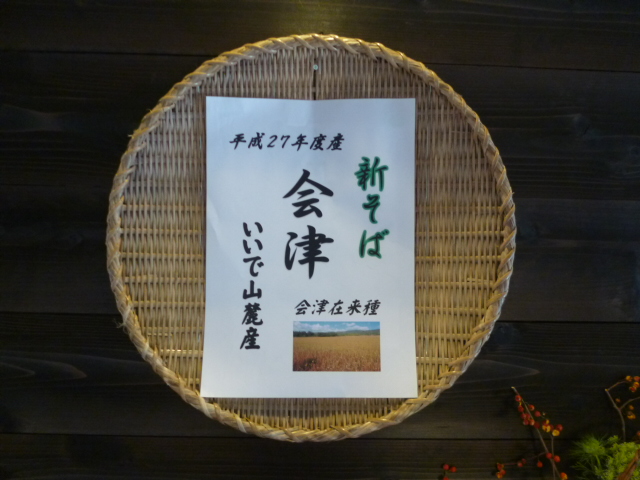 平成27年度産
新そば
会津
いいで山麓産
会津在来種